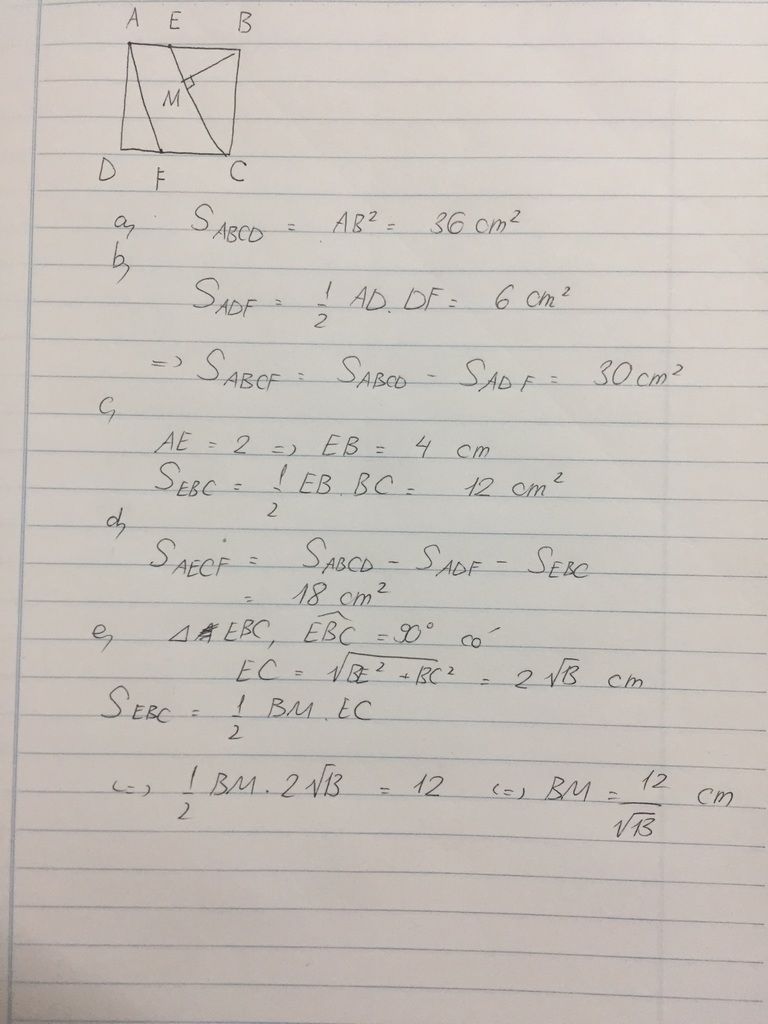 A E B
M
D F C
a, S_ABCD = AB² = 36 cm²
b,
S_ADF = 1/2 AD.DF = 6 cm²
=> S_ABCF = S_ABCD - S_ADF = 30 cm²
c,
AE = 2 => EB = 4 cm
S_EBC = 1/2 EB.BC = 12 cm²
d,
S_AECF = S_ABCD - S_ADF - S_EBC
= 18 cm²
e, Δ EBC, \widehat{EBC} = 90° có
EC = √(BE² + BC²) = 2√13 cm
S_EBC = 1/2 BM.EC
<=> 1/2 BM.2√13 = 12 <=> BM = 12/√13 cm